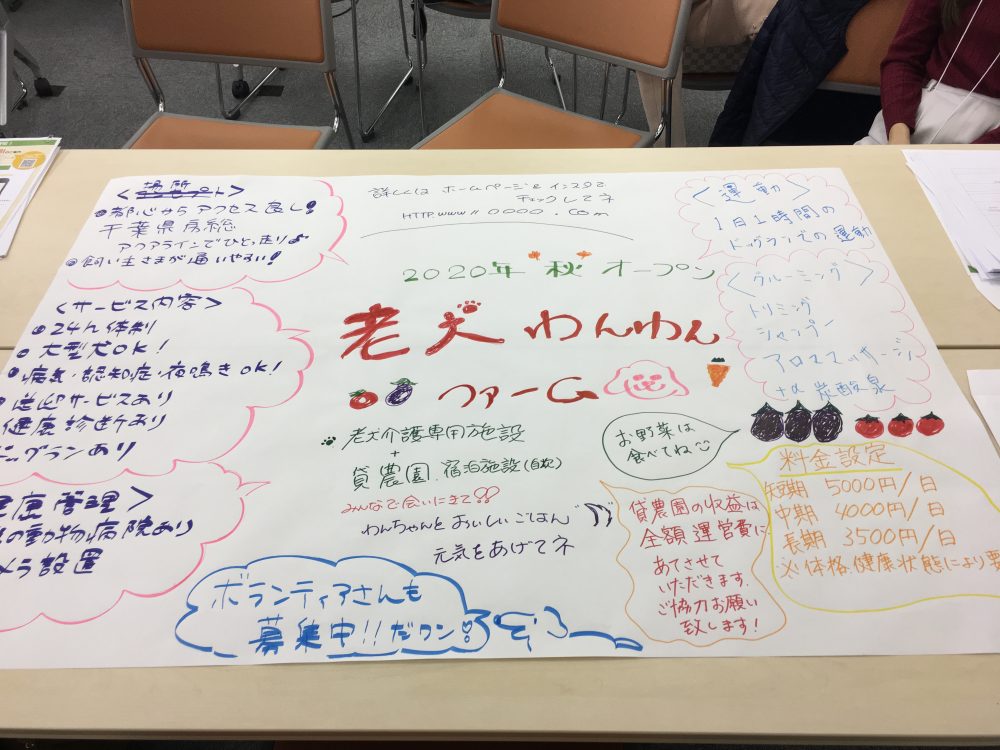 詳しくは ホームページ&インスタで
チェックしてネ
HTTP.www//0000.com
2020年 秋 オープン
老犬 わんわん
ファーム
老犬介護専用施設
+
貸農園、宿泊施設(自炊)
みんなで会いにきて!!
わんちゃんと おいしいごはん
元気をあげてネ
<場所>
都心から アクセス良し!
千葉県房総
アクアラインでひとっ走り♪
飼い主さまが通いやすい!
<サービス内容>
24h体制
大型犬OK!
病気・認知症・夜鳴きOK!
送迎サービスあり
健康診断あり
ドッグランあり
健康管理>
の動物病院あり
メラ設置
ボランティアさんも
募集中!!だワン!
<運動>
1日1時間の
ドッグランでの運動
<グルーミング>
トリミング
シャンプー
アロママッサージ
+α 炭酸泉
お野菜は
食べてね
貸農園の収益は
全額運営費に
あてさせて
いただきます。
ご協力お願い
致します!
料金設定
短期 5000円/日
中期 4000円/日
長期 3500円/日
※体格、健康状態により要